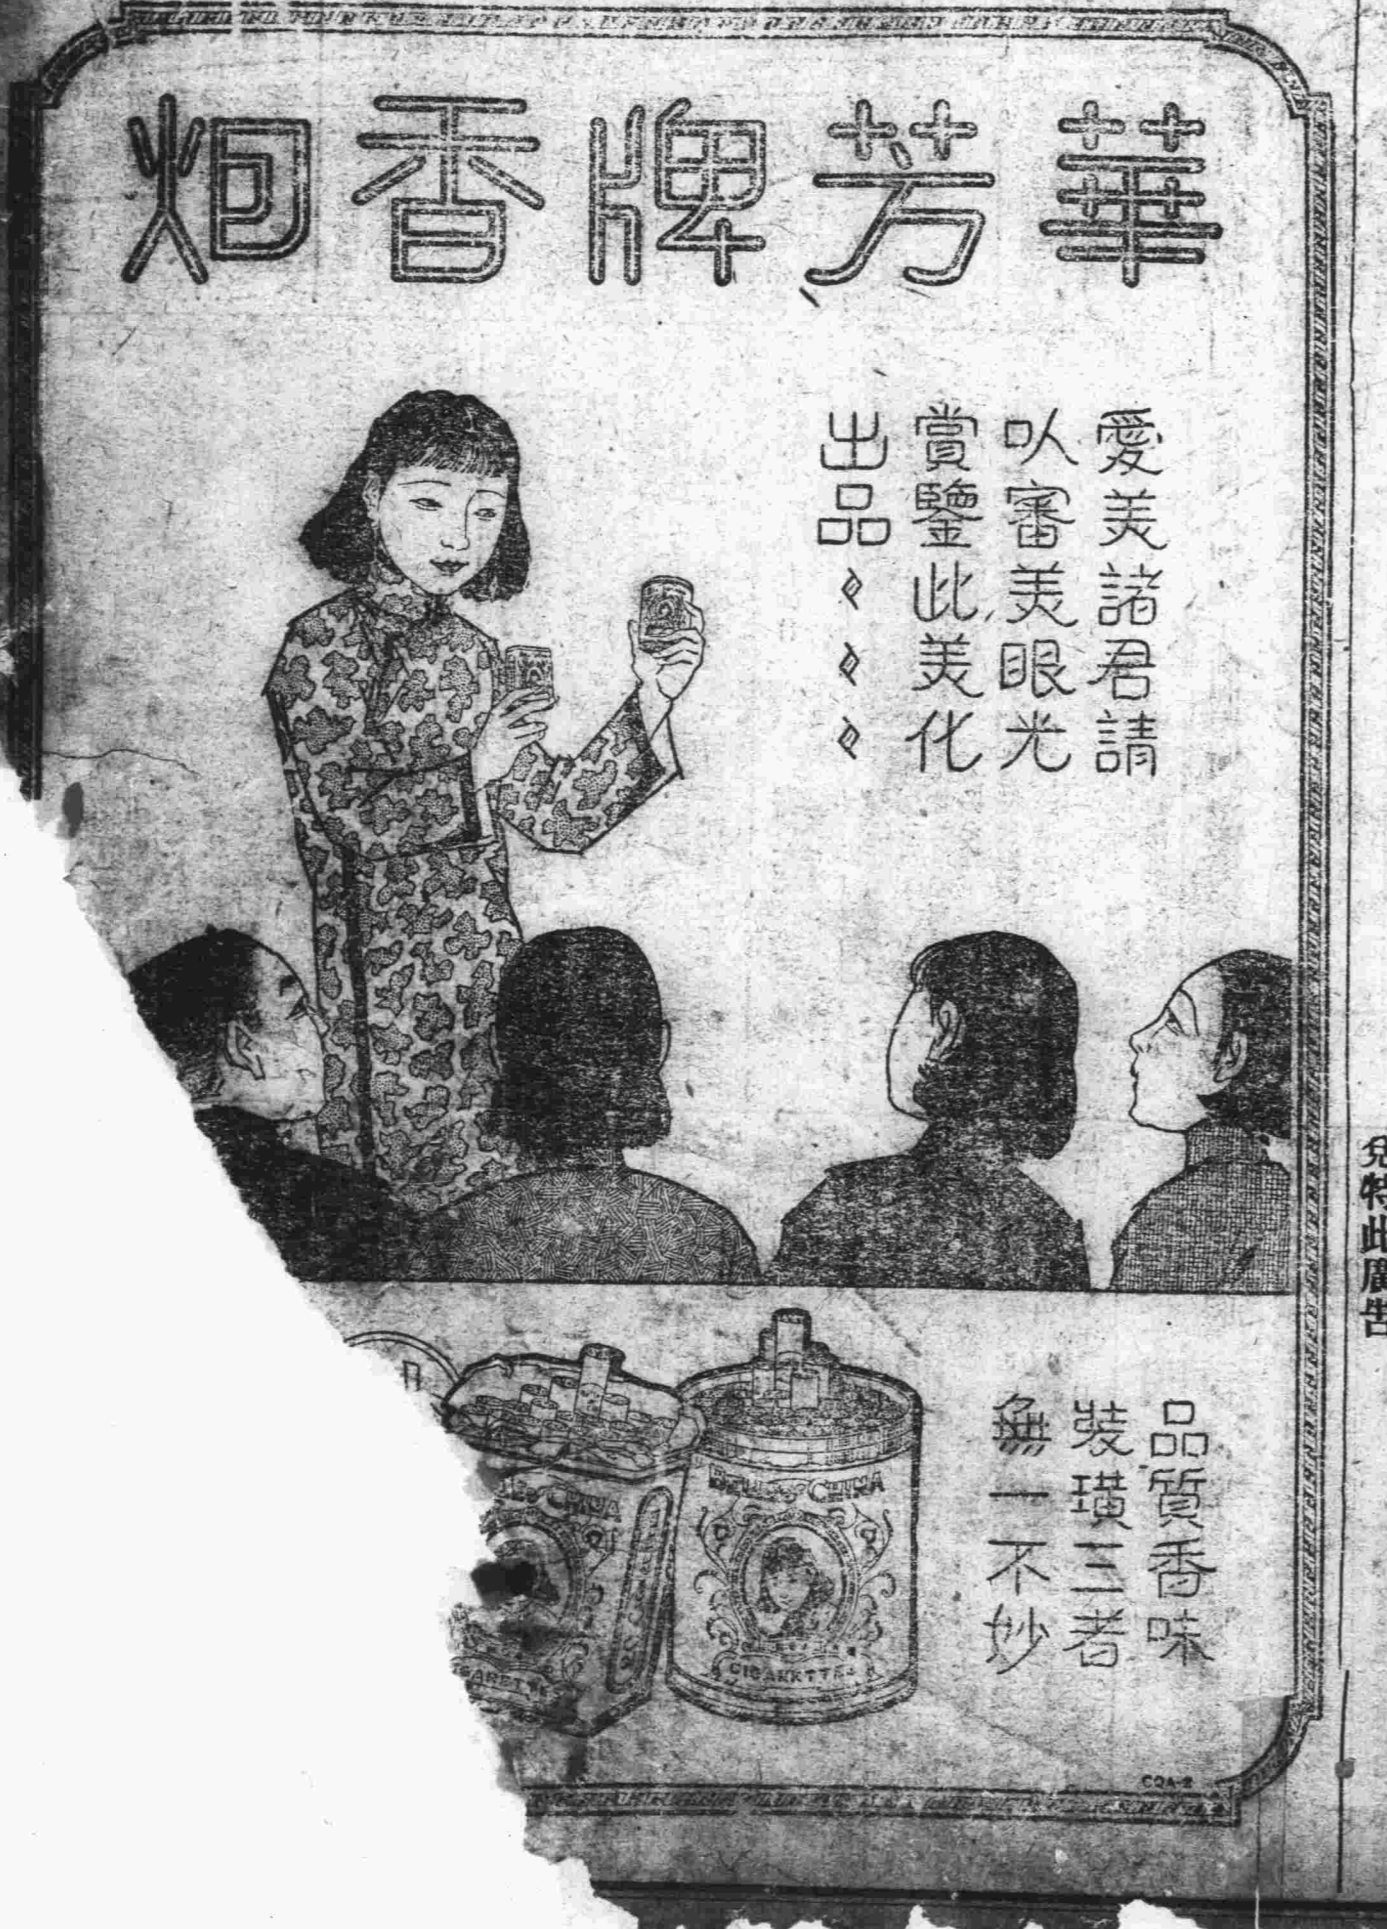 華芳牌香炮
愛美諸君請
以審美眼光
賞鑒此美化
出品
品質香味
裝璜三者
無一不妙
BELLE OF CHINA
CIGARETTES
CHINA
CQA-2
兒特此廣告